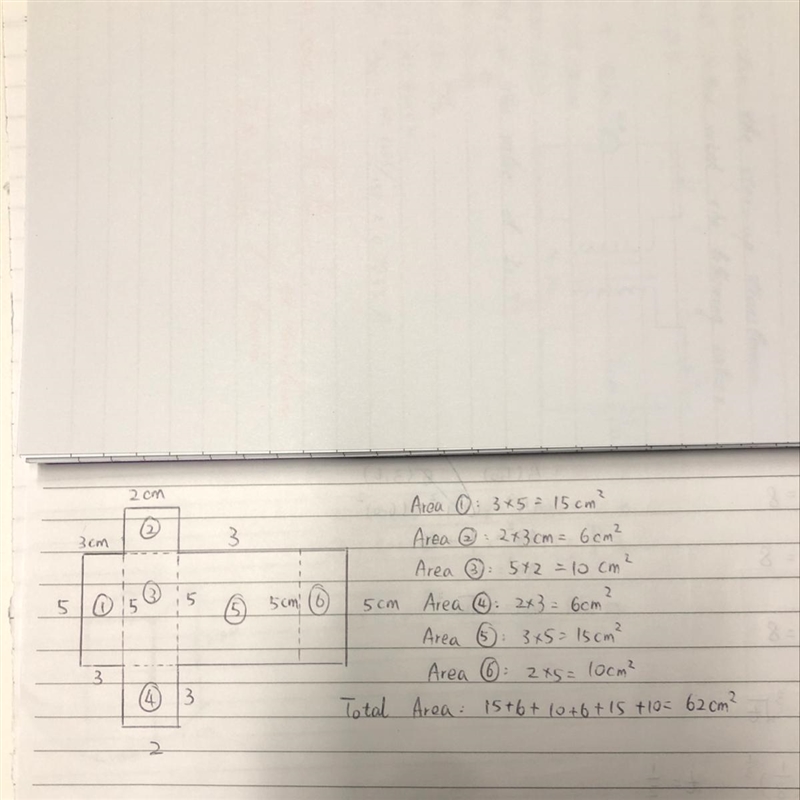 2cm
②
3cm
3
5
①
5
③
5
⑤
5cm
⑥
5cm
3
④
3
2
Area ①: 3×5=15cm²
Area ②: 2×3cm=6cm²
Area ③: 5×2=10 cm²
Area ④: 2×3=6cm²
Area ⑤: 3×5=15cm²
Area ⑥: 2×5=10cm²
Total Area: 15+6+10+6+15+10=62cm²